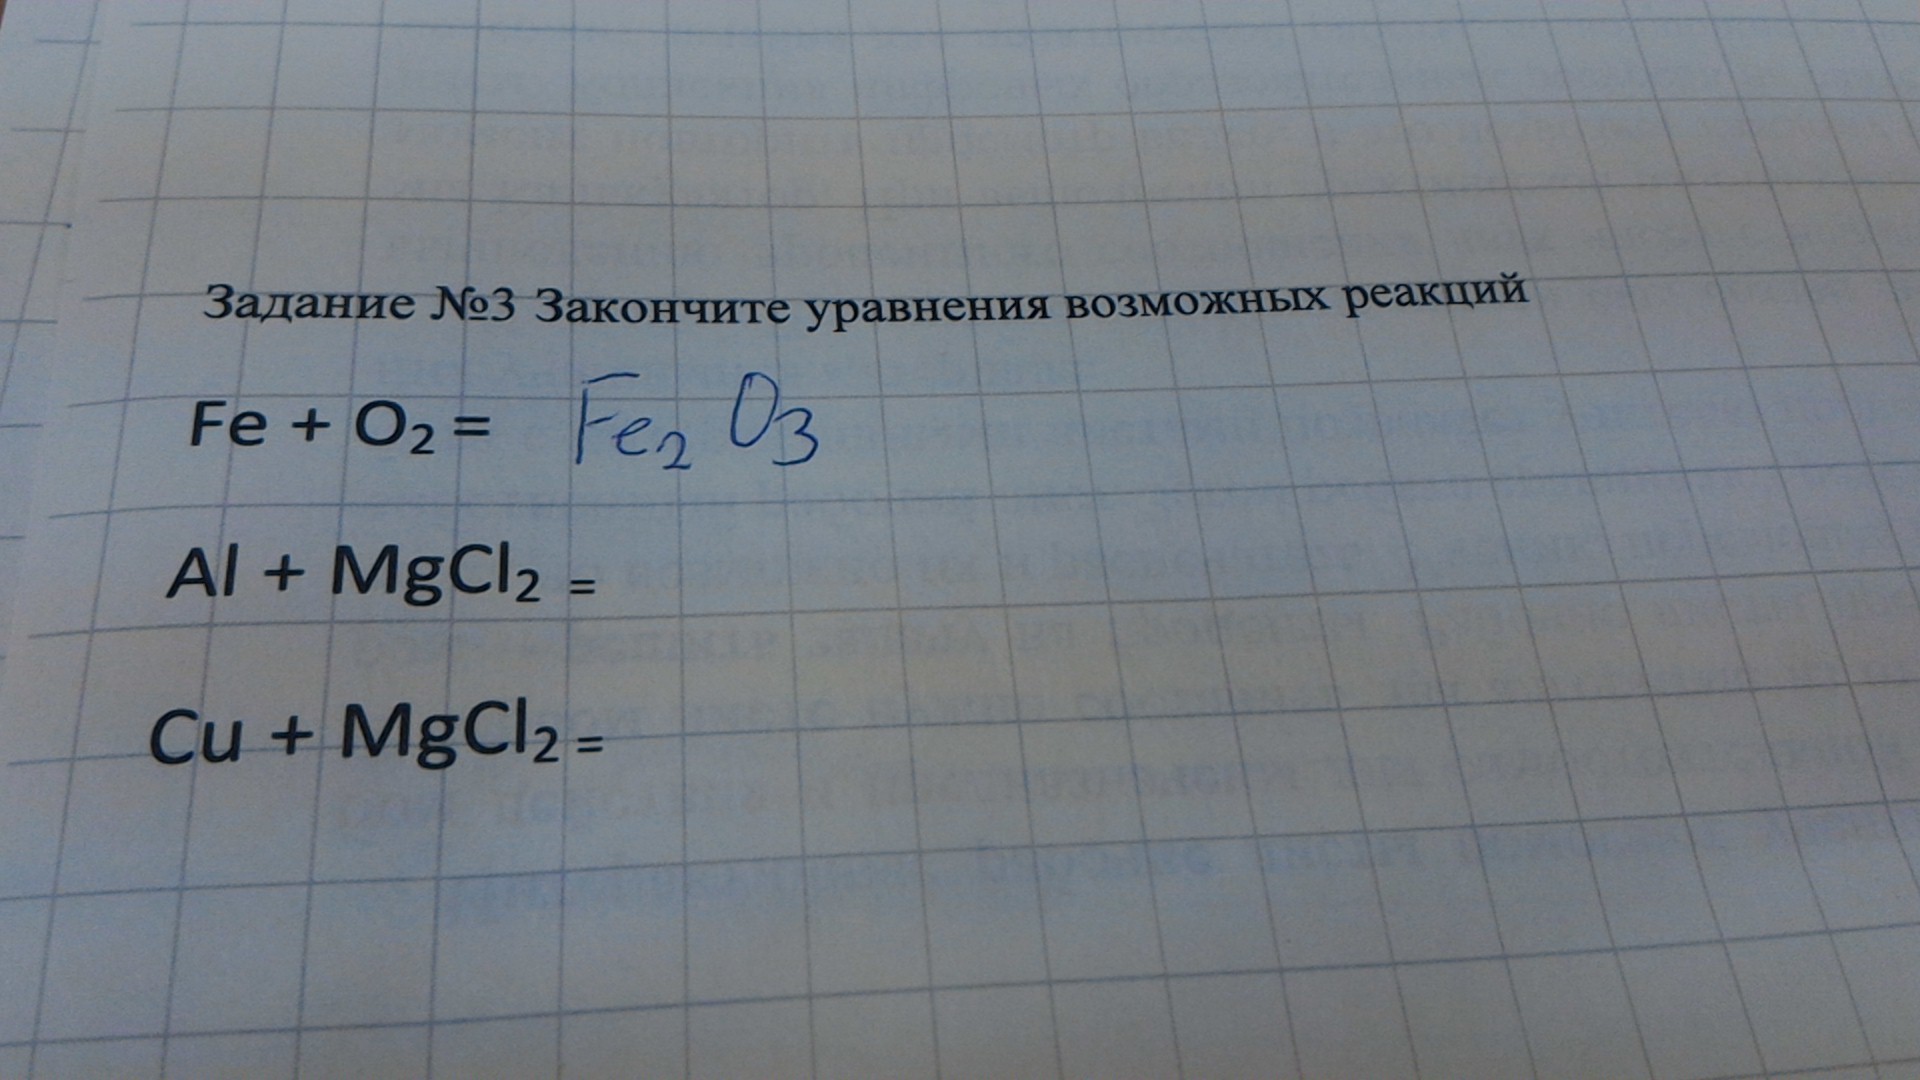 Задание №3 Закончите уравнения возможных реакций
Fe + O₂ = Fe₂O₃
Al + MgCl₂ =
Cu + MgCl₂ =